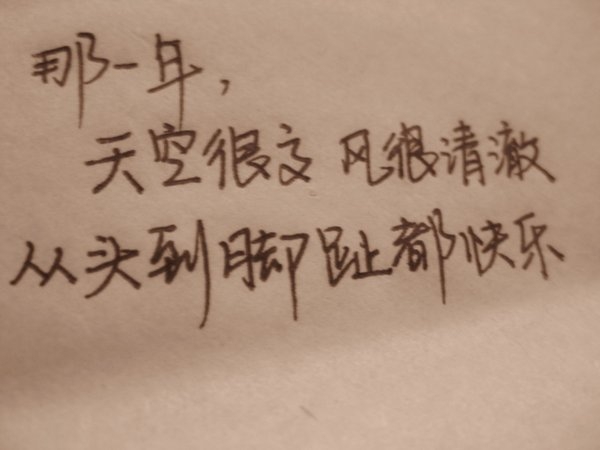 那一年,
天空很高 风很清澈
从头到脚趾都快乐